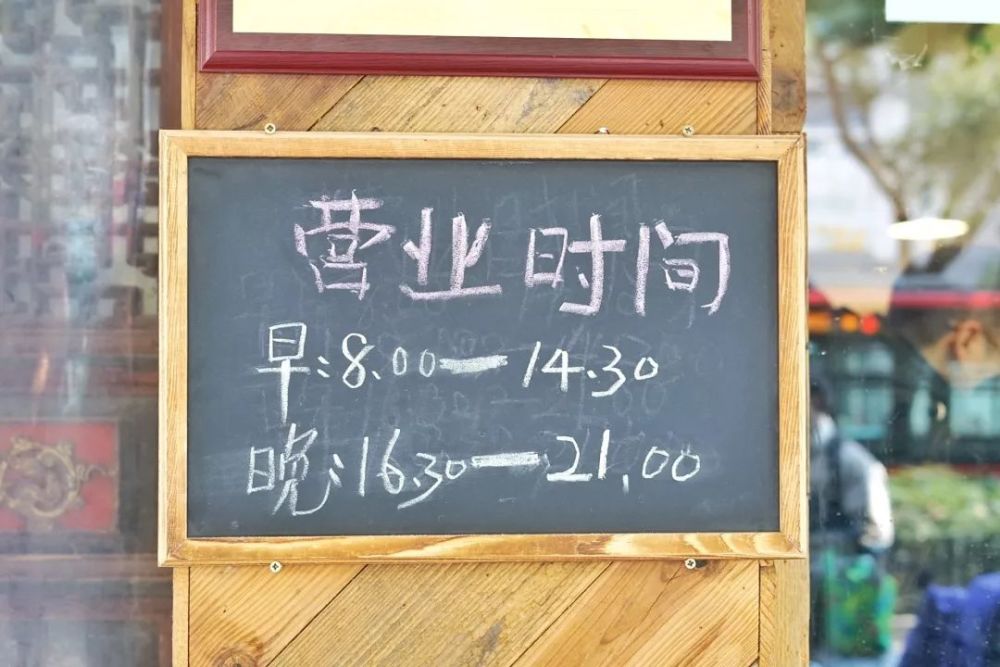 营业时间
早:8.00—14.30
晚:16.30—21.00